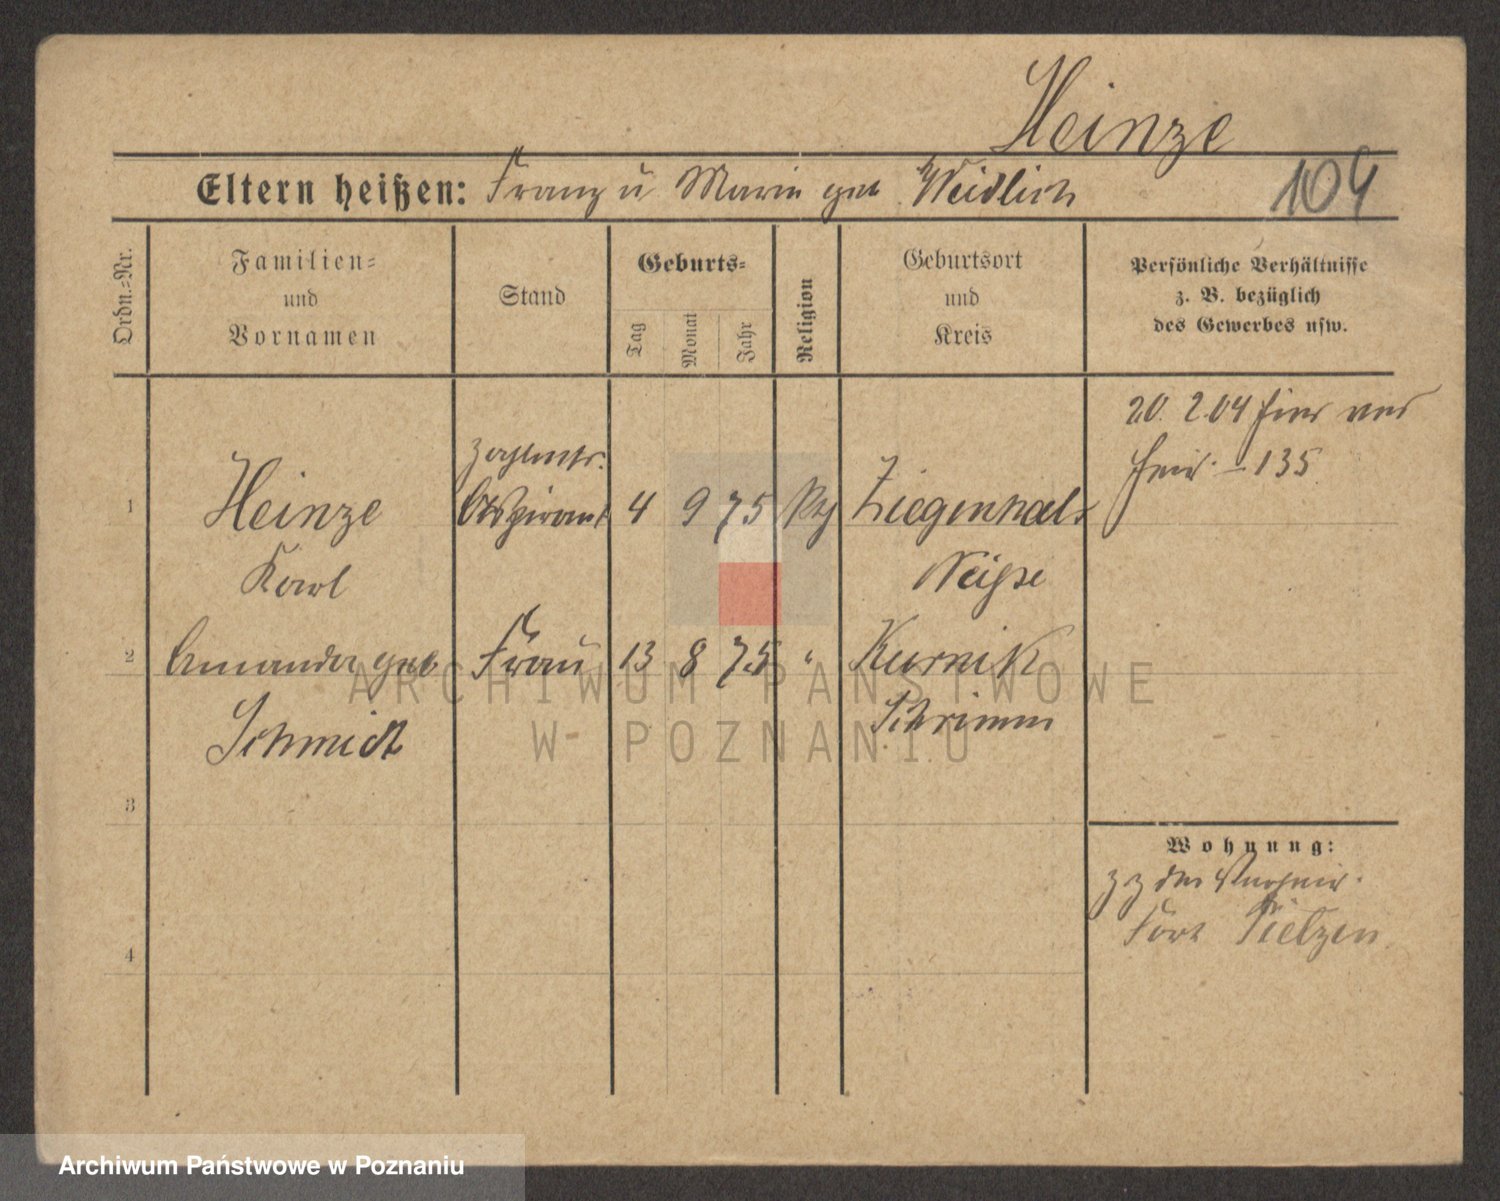 Heinze
Eltern heißen: Franz u Marie geb Weidlich
104
Ordn.-Nr.
Familien-
und
Vornamen
Stand
Geburts-
Tag
Monat
Jahr
Religion
Geburtsort
und
Kreis
Persönliche Verhältnisse
z. B. bezüglich
des Gewerbes usw.
20. 2.04 hier
135
Zahlmstr.
1 Heinze Aspirant 4 9 75 Ziegenhals
Karl Neiße
2 Amanda geb Frau 13 8 75 " Kurnik
Schmidt Schrimm
3
4
Wohnung:
Fort Tietzen
ARCHIWUM PAŃSTWOWE
W POZNANIU
Archiwum Państwowe w Poznaniu